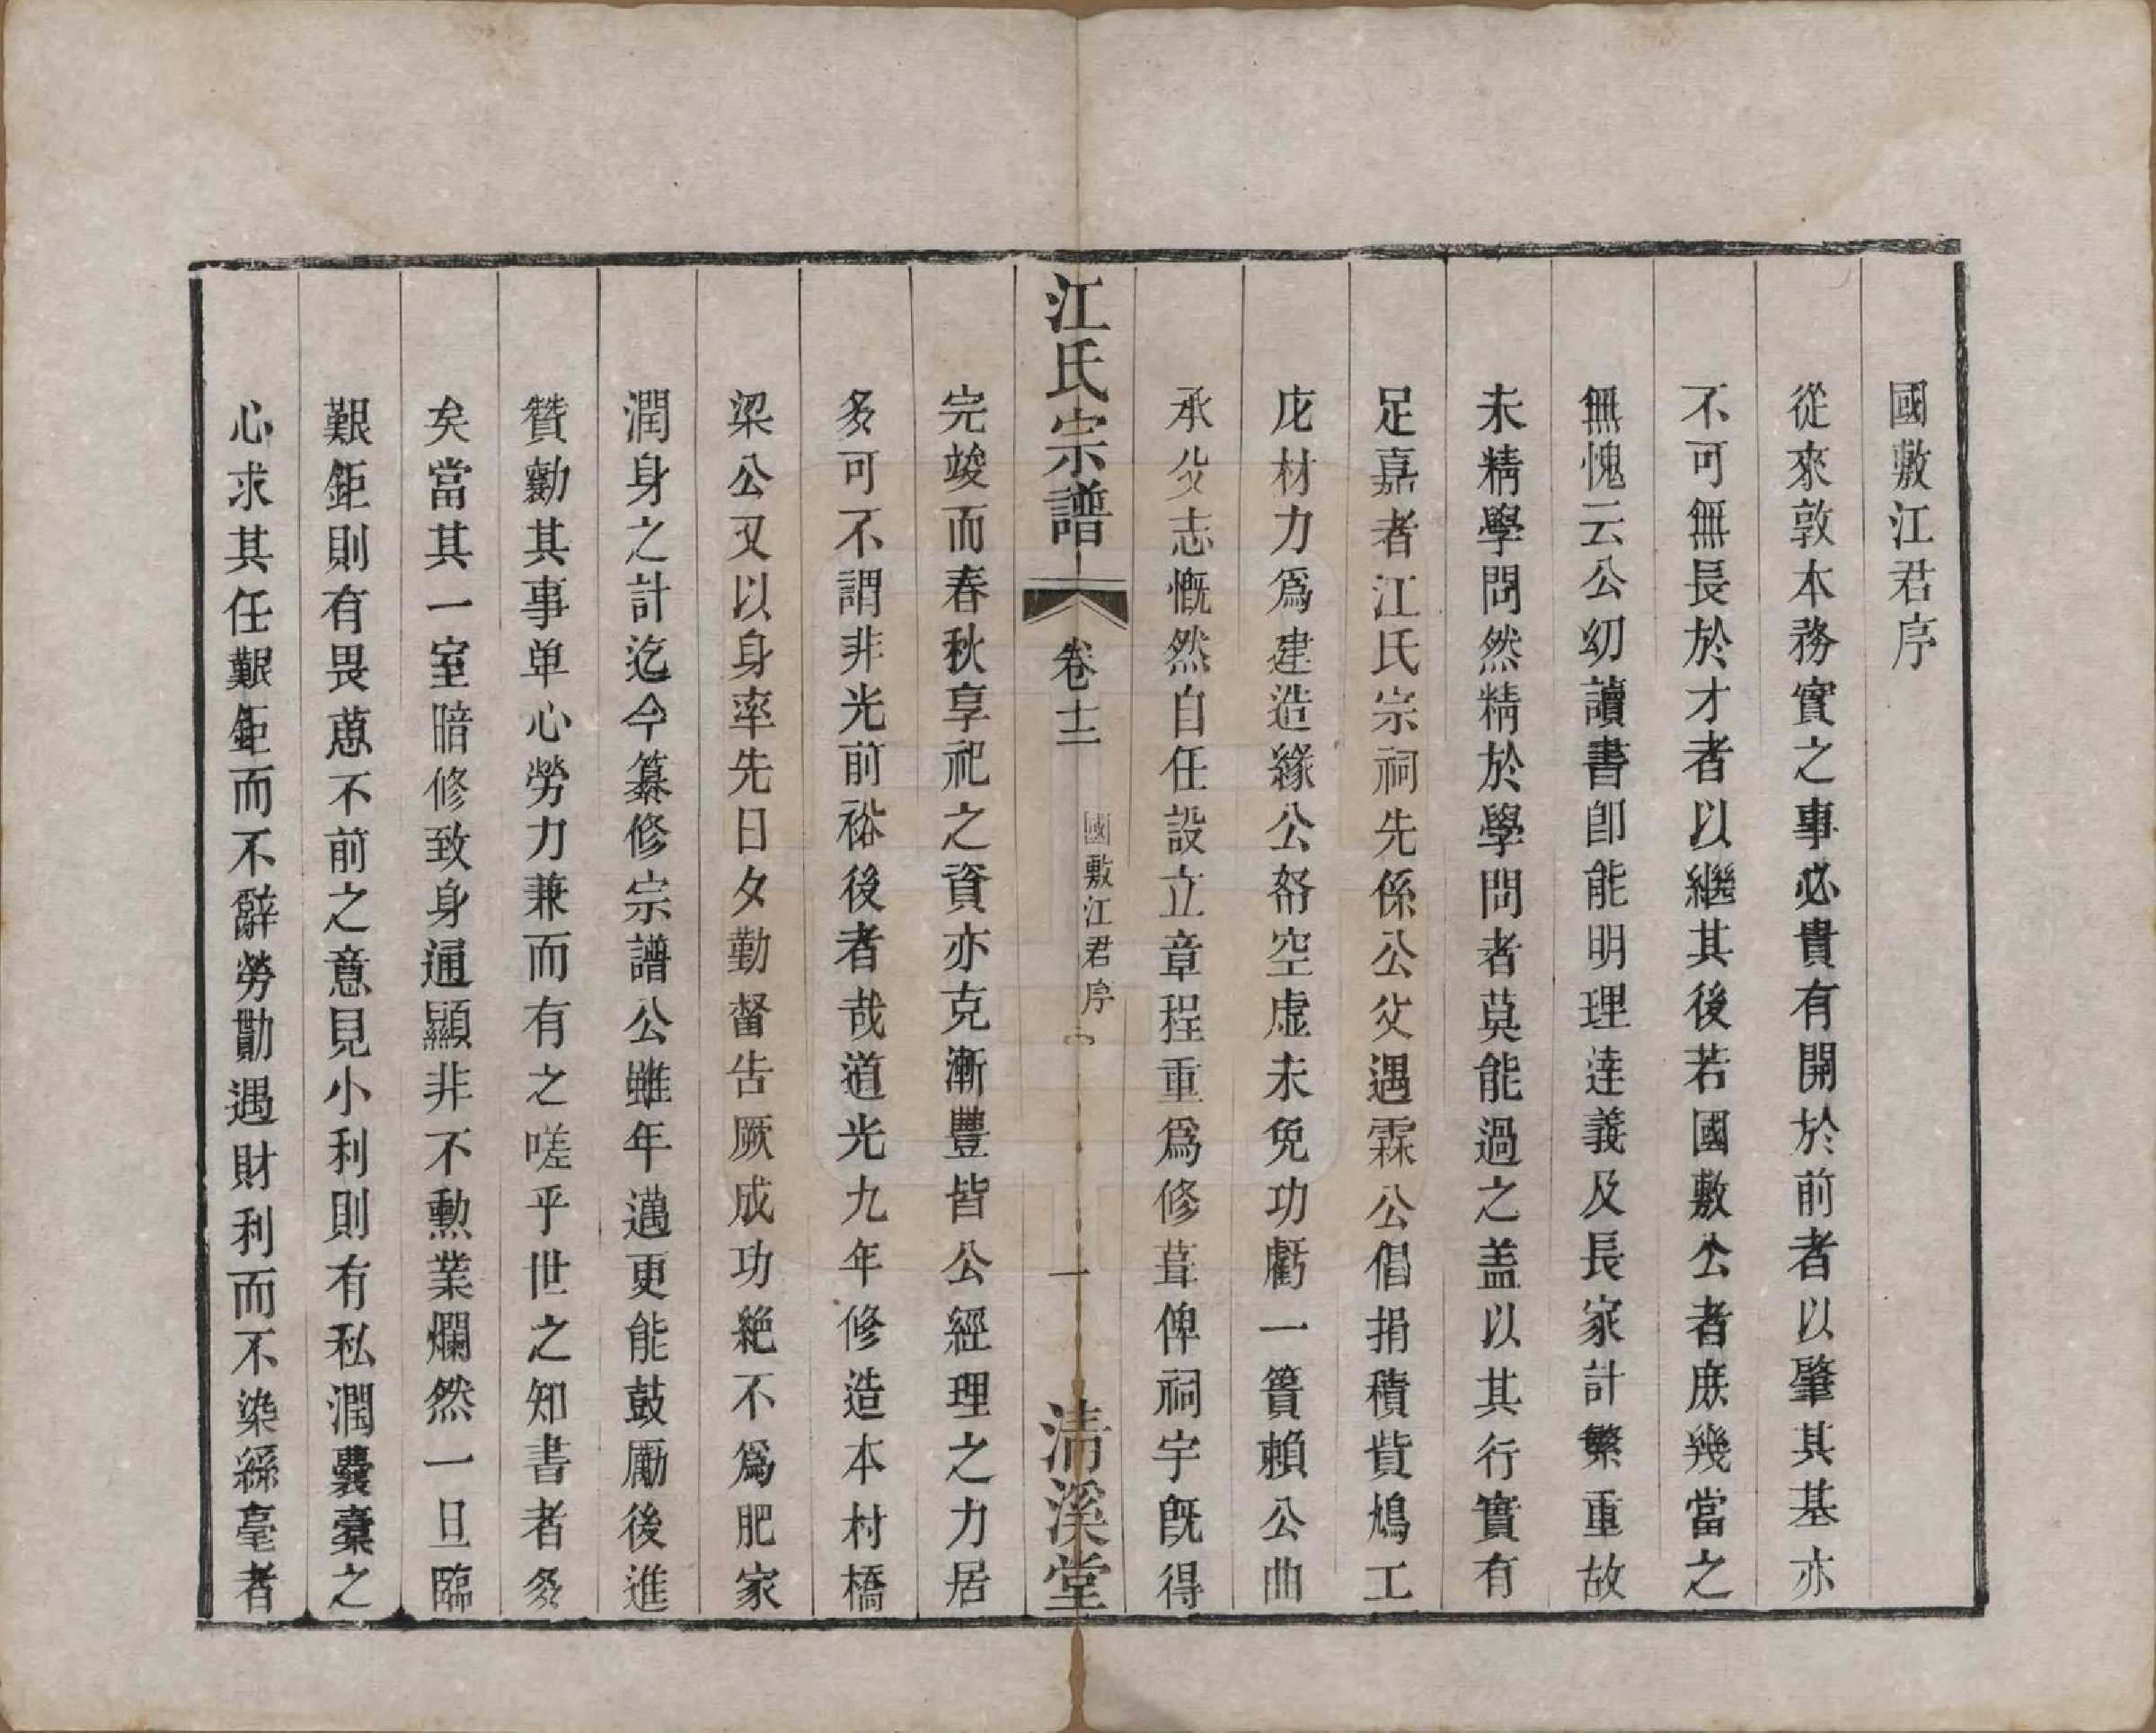 國敷江君序
從來敦本務實之事必貴有開於前者以肇其基亦
不可無長於才者以繼其後若國敷公者庶幾當之
無愧云公幼讀書即能明理達義及長家計繁重故
未精學問然精於學問者莫能過之盖以其行實有
足嘉者江氏宗祠先係公父遇霖公倡捐積貲鳩工
庀材力爲建造緣公帑空虛未免功虧一簣賴公曲
承父志慨然自任設立章程重爲修葺俾祠宇旣得
江氏宗譜
卷十二
國敷江君序
一
清溪堂
完竣而春秋享祀之資亦克漸豐皆公經理之力居
多可不謂非光前裕後者哉道光九年修造本村橋
梁公又以身率先日夕勤督告厥成功絶不爲肥家
潤身之計迄今纂修宗譜公雖年邁更能鼓勵後進
贊勷其事单心勞力兼而有之嗟乎世之知書者多
矣當其一室暗修致身通顯非不勲業爛然一旦臨
艱鉅則有畏葸不前之意見小利則有私潤囊橐之
心求其任艱鉅而不辭勞勩遇財利而不染絲毫者